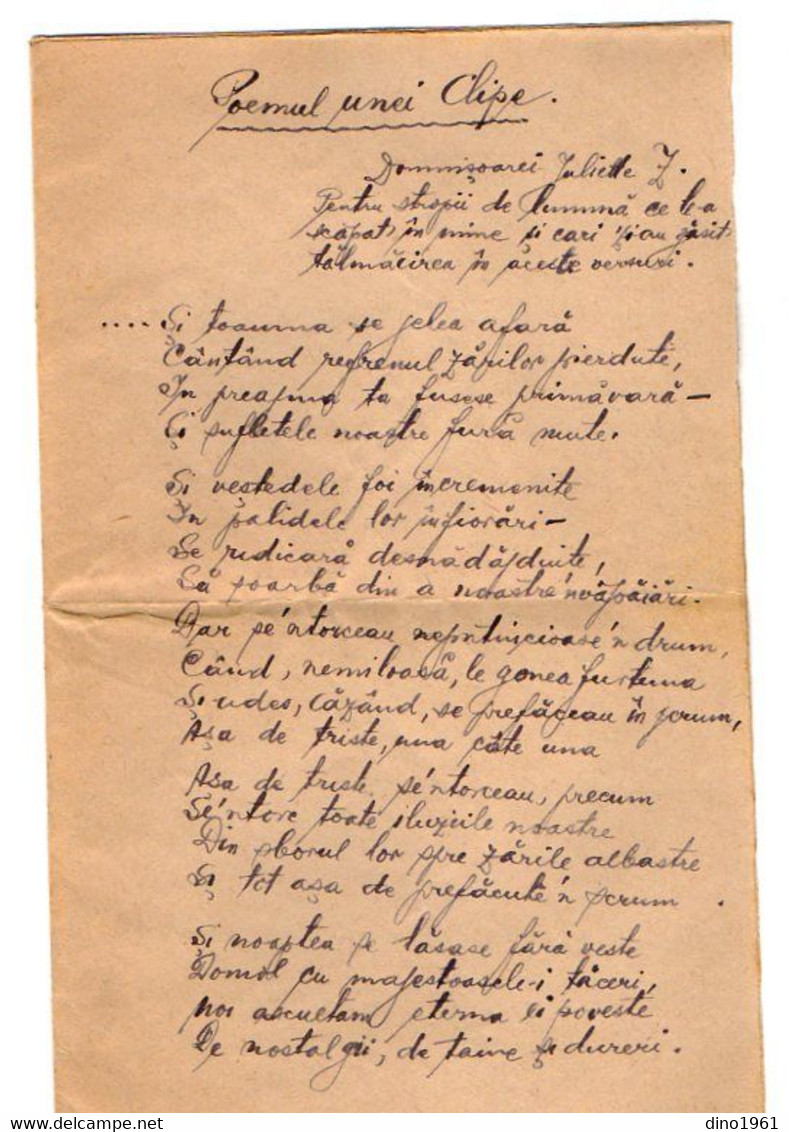 Poemul unei Clipe.
Domnișoarei Juliette Z.
Pentru stropii de lumină ce le-a
scăpat în mine și cari și-au găsit
tălmăcirea în aceste versuri.
.... Și toamna se jelea afară
Cântând refrenul zărilor pierdute,
In preajma ta fusese primăvară —
Și sufletele noastre fură mute.
Și veștedele foi încremenite
In palidele lor înfiorări —
Se ridicară desnădăjduite,
Să soarbă din a noastre 'nvăpăiări.
Dar se'ntorceau neputincioase'n drum,
Când, nemiloasă, le gonea furtuna
Și ades, căzând, se prefăceau în scrum,
Așa de triste, una câte una
Așa de triste se'ntorceau, precum
Se'ntorc toate iluziile noastre
Din sborul lor spre zările albastre
Și tot așa de prefăcute'n scrum.
Și noaptea se lăsase fără veste
Domol cu majestoasele-i tăceri,
Noi ascultam eterna ei poveste
De nostalgii, de taine și dureri.
dino1961